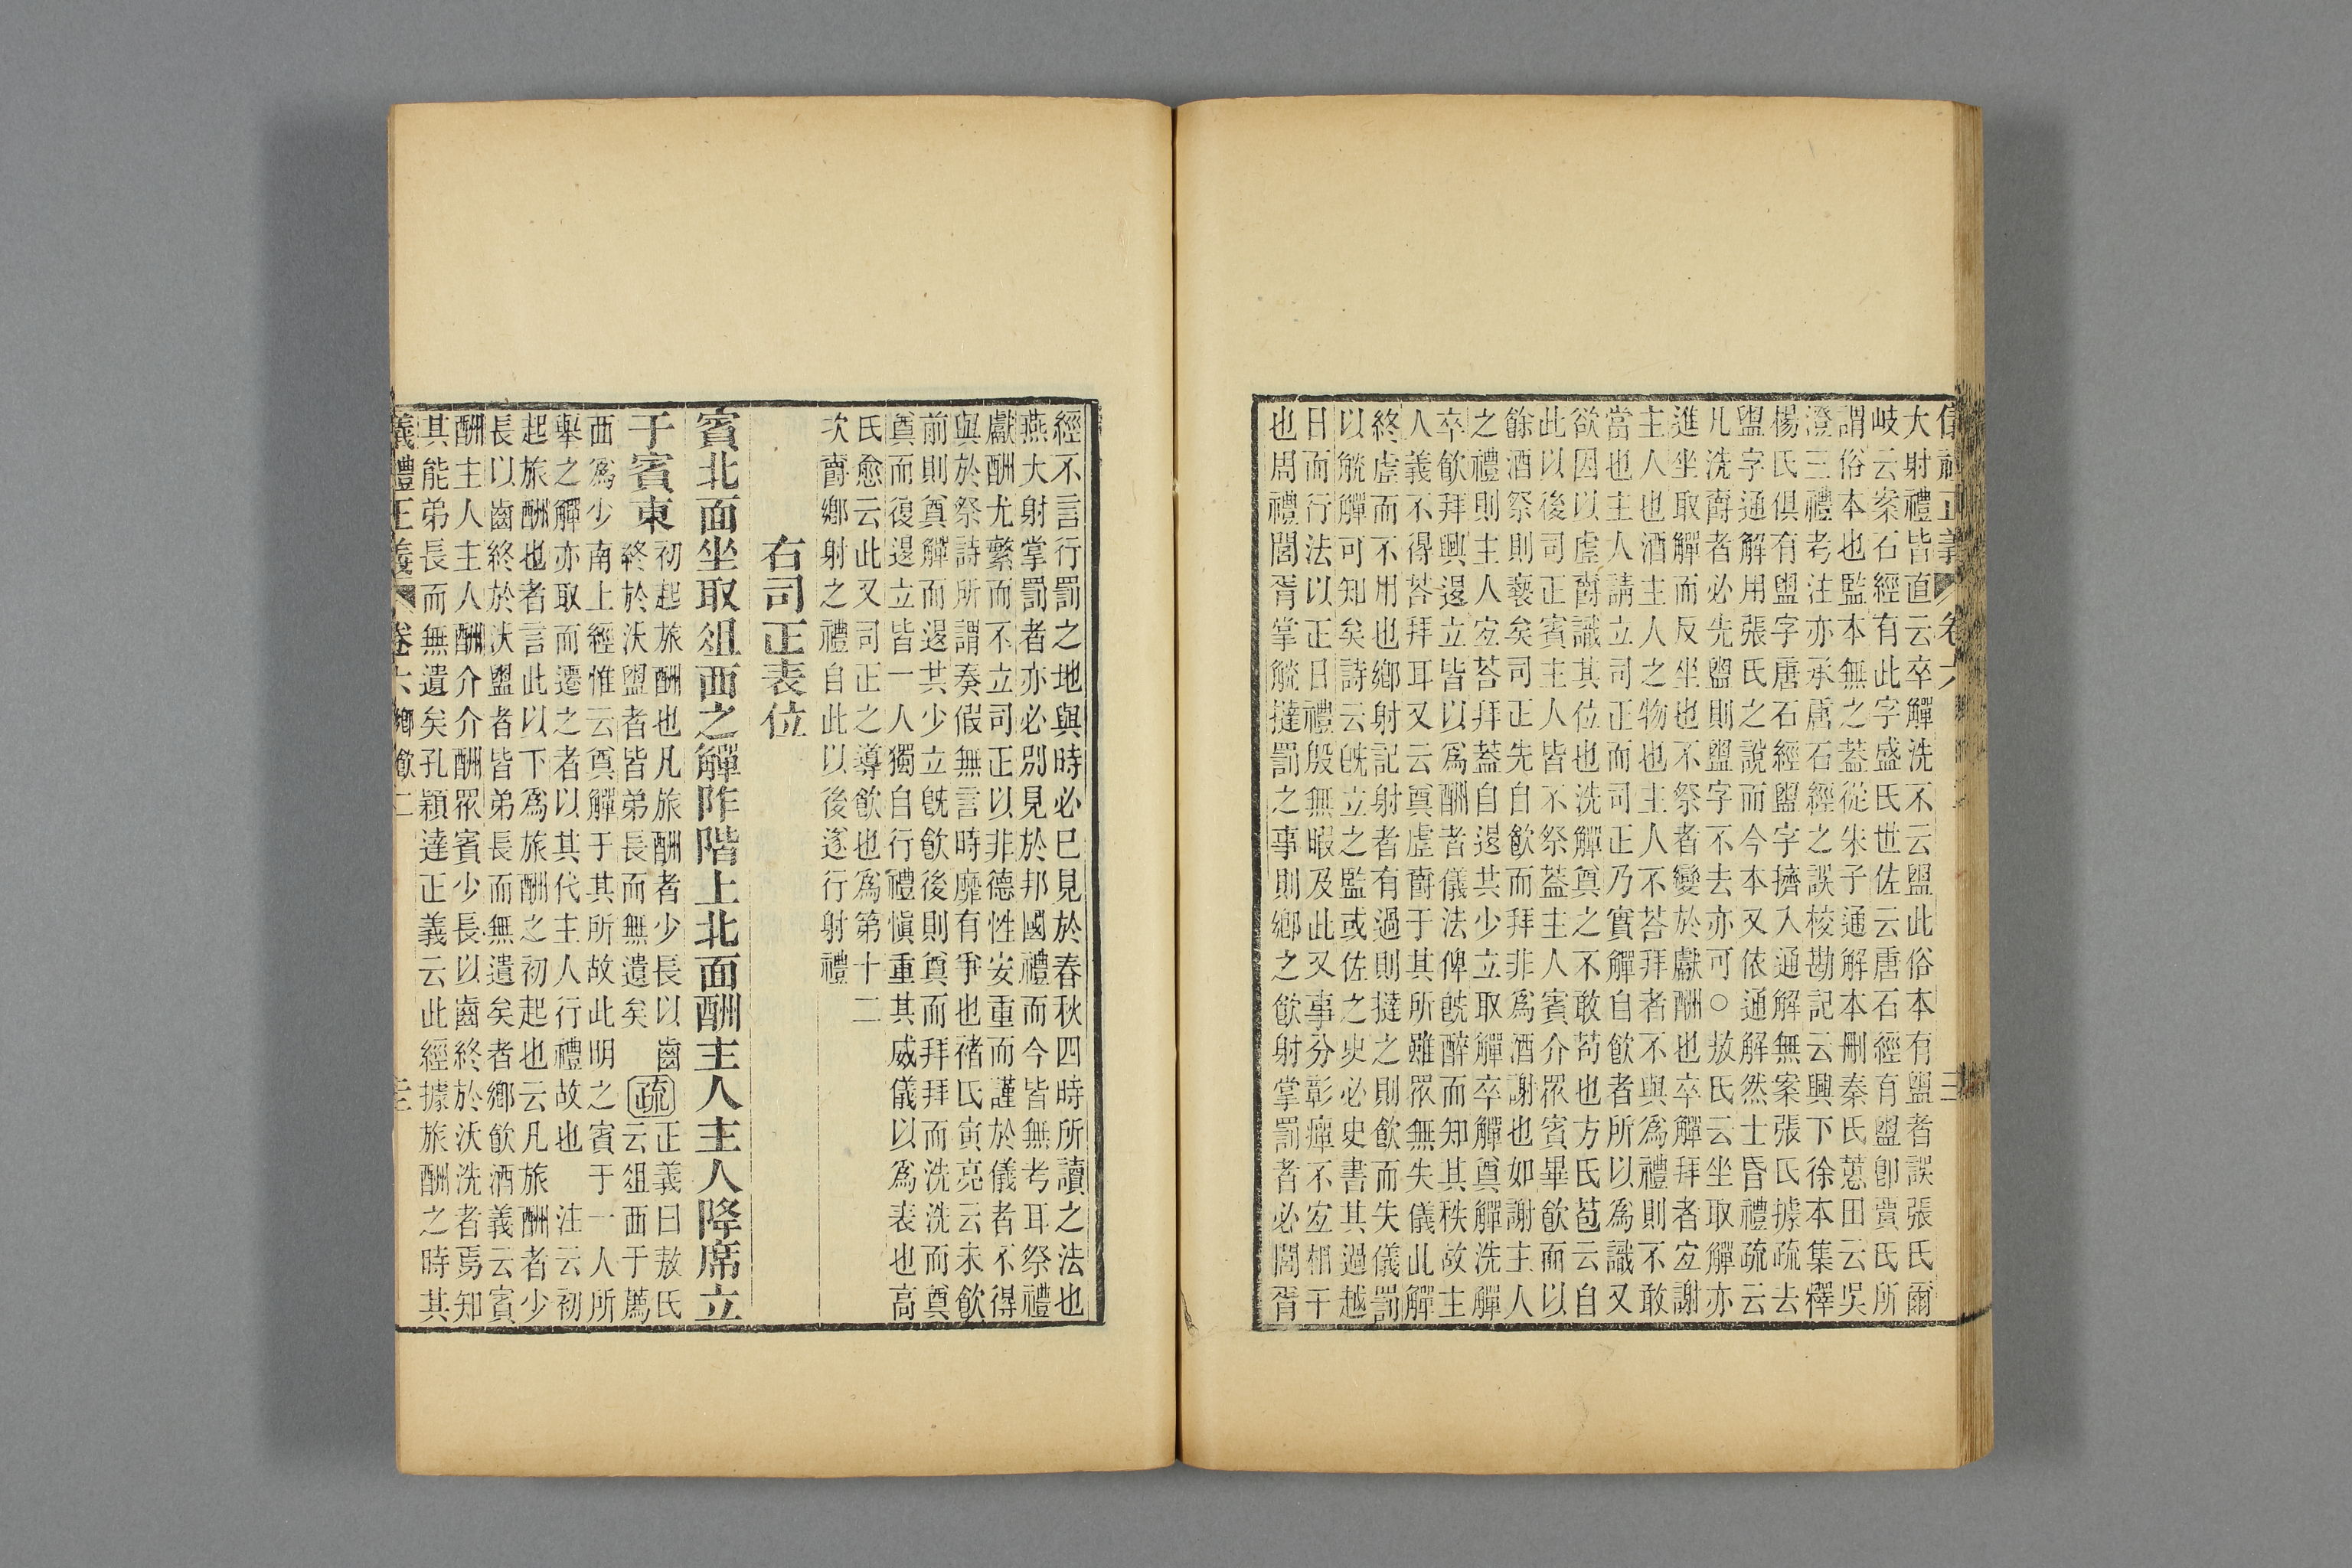 儀禮正義 卷六 三
大射禮皆直云卒觶洗不云盥此俗本有盥者誤張氏爾
岐云案石經有此字盛氏世佐云唐石經有盥卽賈氏所
謂俗本也監本無之蓋從朱子通解本刪秦氏蕙田云吳
澄三禮考注亦承唐石經之誤校勘記云興下徐本集釋
楊氏俱有盥字唐石經盥字擠入通解無案張氏據疏去
盥字通解用張氏之說而今本又依通解然士昏禮疏云
凡洗爵者必先盥則盥字不去亦可○敖氏云坐取觶亦
進坐取觶而反坐也不祭者變於獻酬也卒觶拜者宐謝
主人也酒主人之物也主人不荅拜者不與爲禮則不敢
當也主人請立司正而司正乃實觶自飮者所以爲識又
欲因以虛爵識其位也洗觶奠之不敢苟也方氏苞云自
此以後司正賓主人皆不祭葢主人賓介眾賓畢飮而以
餘酒祭則褻矣司正先自飮而拜非爲酒謝也如謝主人
之禮則主人宐荅拜蓋自退共少立取觶卒觶奠觶洗觶
卒飮拜興退立皆以爲酬者儀法俾旣醉而知其秩故主
人義不得荅拜耳又云奠虛爵于其所雖眾無失儀此觶
終虛而不用也鄕射記射者有過則撻之則飮而失儀罰
以觥觶可知矣詩云旣立之監或佐之史必史書其過越
日而行法以正日禮殷無暇及此又事分彰癉不宐相干
也周禮閭胥掌觥撻罰之事則鄕之飮射掌罰者必閭胥
經不言行罰之地與時必已見於春秋四時所讀之法也
燕大射掌罰者亦必別見於邦國禮而今皆無考耳祭禮
獻酬尤繁而不立司正以非德性安重而謹於儀者不得
與於祭詩所謂奏假無言時靡有爭也禇氏寅亮云未飮
前則奠觶而退其少立旣飮後則奠而拜拜而洗洗而奠
奠而復退立皆一人獨自行禮愼重其威儀以爲表也高
氏愈云此又司正之導飮也爲第十二
次爵鄕射之禮自此以後遂行射禮
右司正表位
賓北面坐取俎西之觶阼階上北面酬主人主人降席立
于賓東
初起旅酬也凡旅酬者少長以齒
終於沃盥者皆弟長而無遺矣
疏
正義曰敖氏
云俎西于薦
西爲少南上經惟云奠觶于其所故此明之賓于一人所
舉之觶亦取而遷之者以其代主人行禮故也　注云初
起旅酬也者言此以下爲旅酬之初起也云凡旅酬者少
長以齒終於沃盥者皆弟長而無遺矣者鄕飮酒義云賓
酬主人主人酬介介酬眾賓少長以齒終於沃洗者焉知
其能弟長而無遺矣孔穎達正義云此經據旅酬之時其
儀禮正義 卷六 鄕飮二